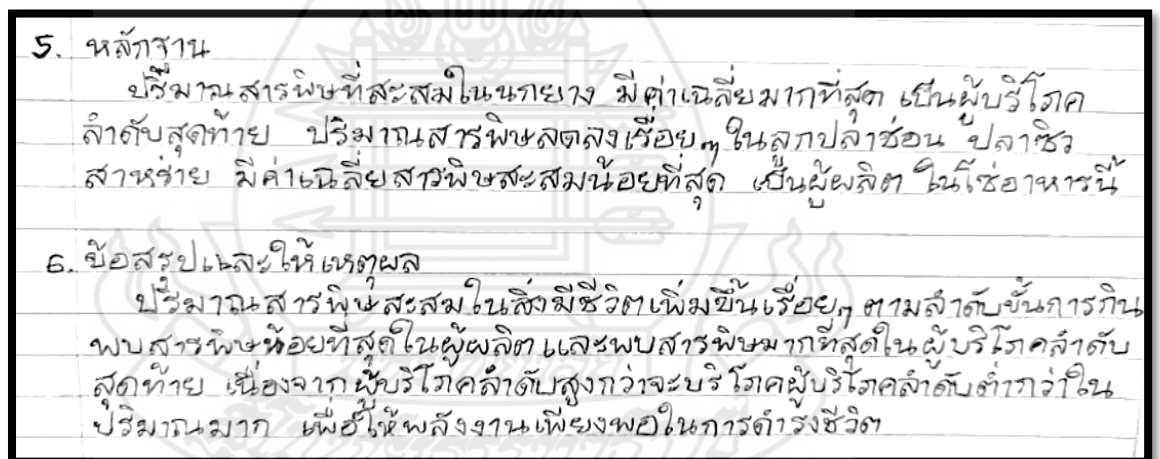 5. หลักฐาน
ปริมาณสารพิษที่สะสมในนกยาง มีค่าเฉลี่ยมากที่สุด เป็นผู้บริโภค
ลำดับสุดท้าย ปริมาณสารพิษลดลงเรื่อยๆ ในลูกปลาช่อน ปลาซิว
สาหร่าย มีค่าเฉลี่ยสารพิษสะสมน้อยที่สุด เป็นผู้ผลิต ในโซ่อาหารนี้
6. ข้อสรุปและให้เหตุผล
ปริมาณสารพิษสะสมในสิ่งมีชีวิตเพิ่มขึ้นเรื่อยๆ ตามลำดับขั้นการกิน
พบสารพิษน้อยที่สุดในผู้ผลิต และพบสารพิษมากที่สุดในผู้บริโภคลำดับ
สุดท้าย เนื่องจากผู้บริโภคลำดับสูงกว่าจะบริโภคผู้บริโภคลำดับต่ำกว่าใน
ปริมาณมาก เพื่อให้พลังงานเพียงพอในการดำรงชีวิต